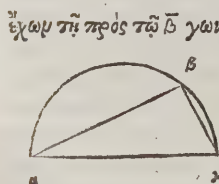 ἔχων τῇ πρὸς τῷ β̄ γων
β
α